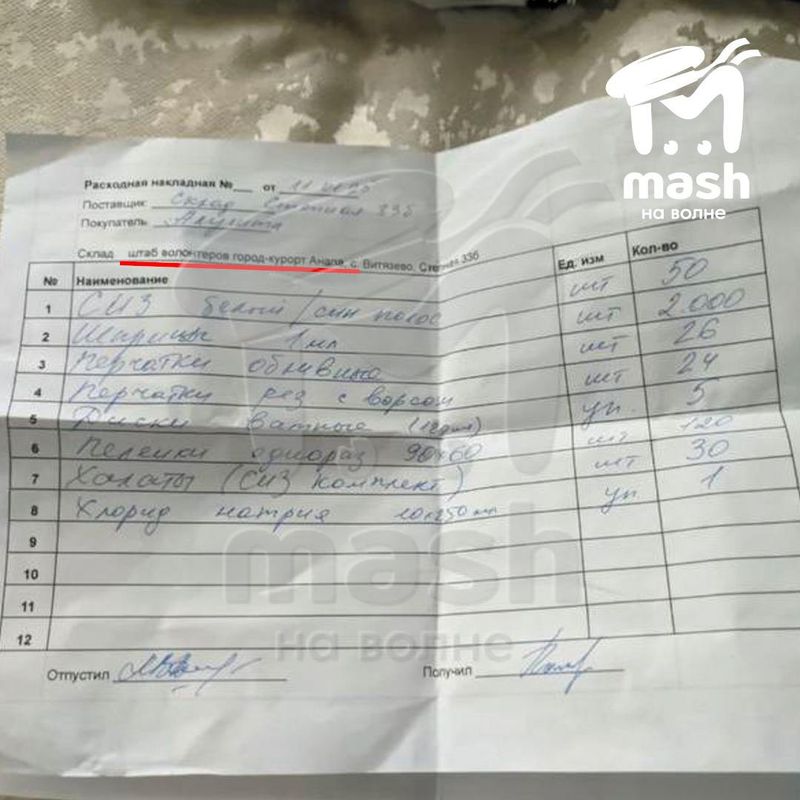 mash
на волне
Расходная накладная №___ от 11
Поставщик Склад Степная 33б
Покупатель
Склад штаб волонтеров город-курорт Анапа, с. Витязево, Степная 33б
№ Наименование Ед. изм Кол-во
1 СИЗ белый/син полос шт 50
2 Шприцы 1 мл шт 2.000
3 Перчатки обливные шт 26
4 Перчатки рез с ворсом шт 24
5 Диски ватные уп. 5
6 Пеленки однораз 90х60 шт 120
7 Халаты (СИЗ комплект) шт 30
8 Хлорид натрия уп 1
9
10
11
12
mash
на волне
Отпустил
Получил